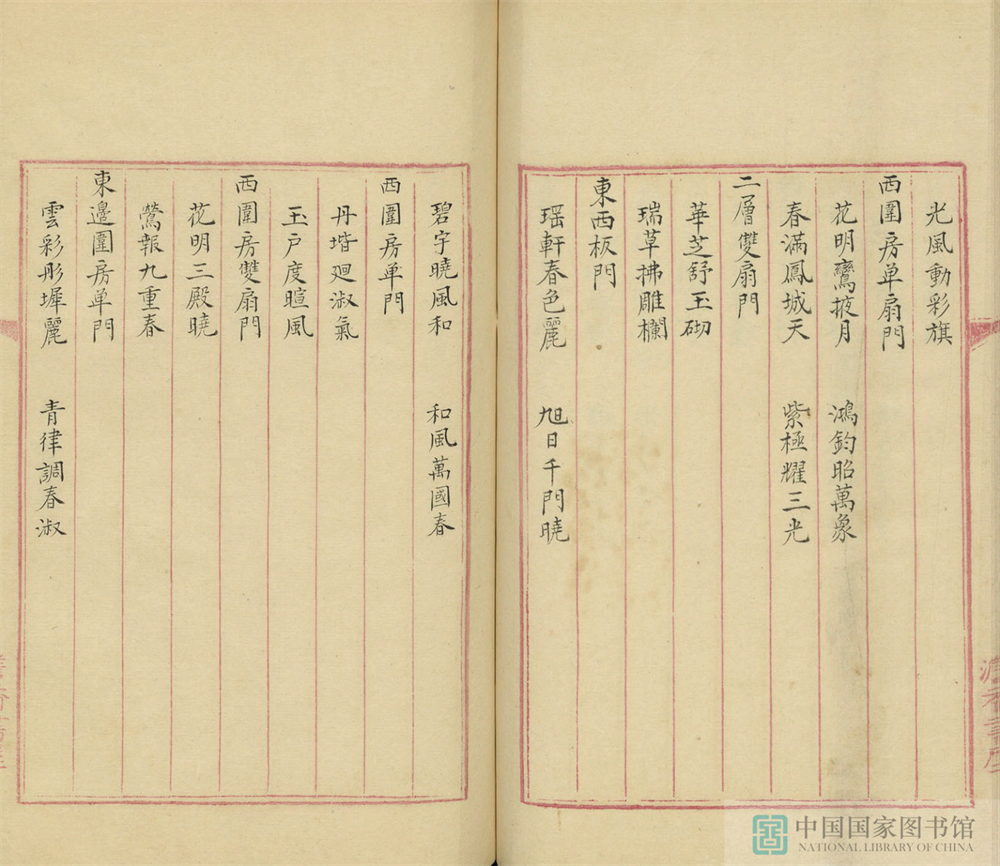 光風動彩旗
西圍房单扇門
花明鸞掖月　鴻鈞昭萬象
春滿鳳城天　紫極耀三光
二層雙扇門
華芝舒玉砌
瑞草拂雕欄
東西板門
瑶軒春色麗　旭日千門曉
碧宇曉風和　和風萬國春
西圍房单門
丹堦迴淑氣
玉戸度暄風
西圍房雙扇門
花明三殿曉
鶯報九重春
東邉圍房单門
雲彩彤墀麗　青律調春淑
中国国家图书馆
NATIONAL LIBRARY OF CHINA